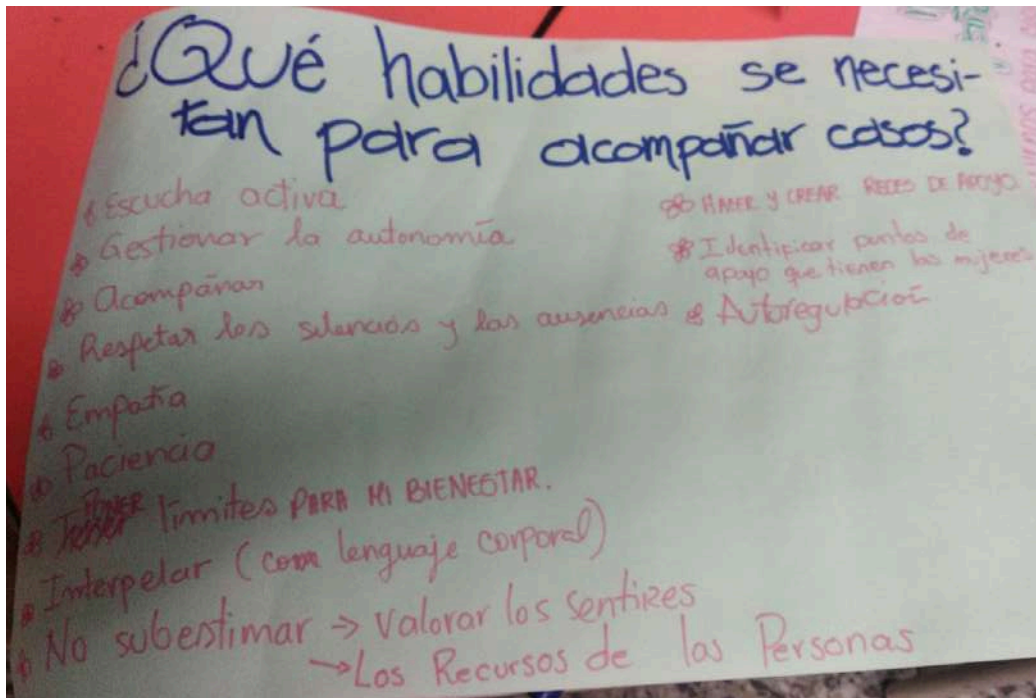 ¿Qué habilidades se necesi-
tan para acompañar casos?
Escucha activa
Gestionar la autonomía
Acompañar
Respetar los silencios y las ausencias
Empatía
Paciencia
PONER límites PARA MI BIENESTAR.
Interpelar (com lenguaje corporal)
No subestimar → Valorar los sentires
→ Los Recursos de las Personas
HACER Y CREAR REDES DE APOYO
Identificar puntos de
apoyo que tienen las mujeres
Autoregulación